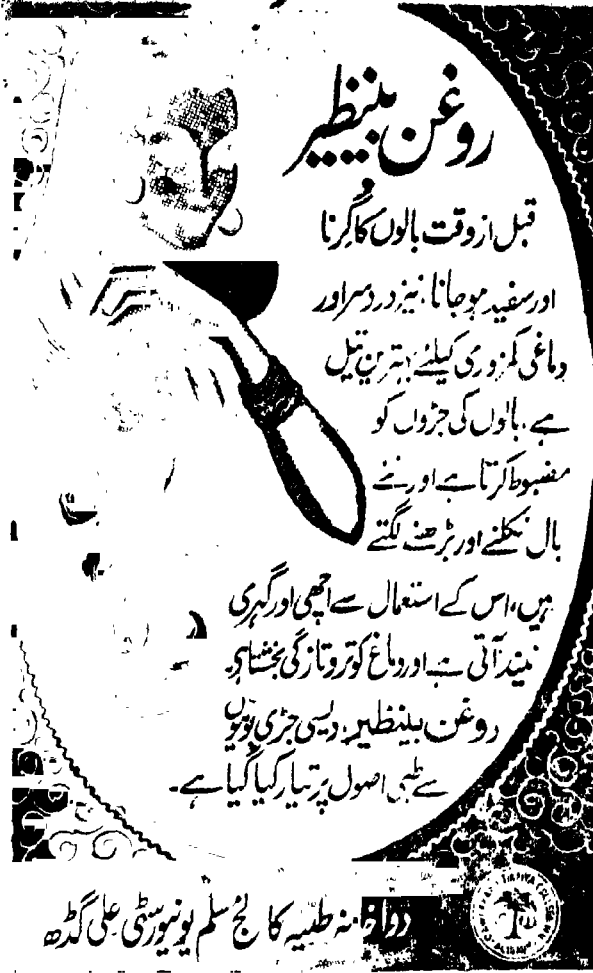 روغن بینظیر
قبل از وقت بالوں کا گرنا
اور سفید ہو جانا، نیز درد سر اور
دماغی کمزوری کیلئے بہترین تیل
ہے، بالوں کی جڑوں کو
مضبوط کرتا ہے اور نئے
بال نکلنے اور بڑھنے لگتے
ہیں، اس کے استعمال سے اچھی اور گہری
نیند آتی ہے اور دماغ کو تروتازگی بخشتا ہے۔
روغن بینظیر، دیسی جڑی بوٹیوں
سے طبی اصول پر تیار کیا گیا ہے۔
دواخانہ طبیہ کالج مسلم یونیورسٹی علی گڈھ